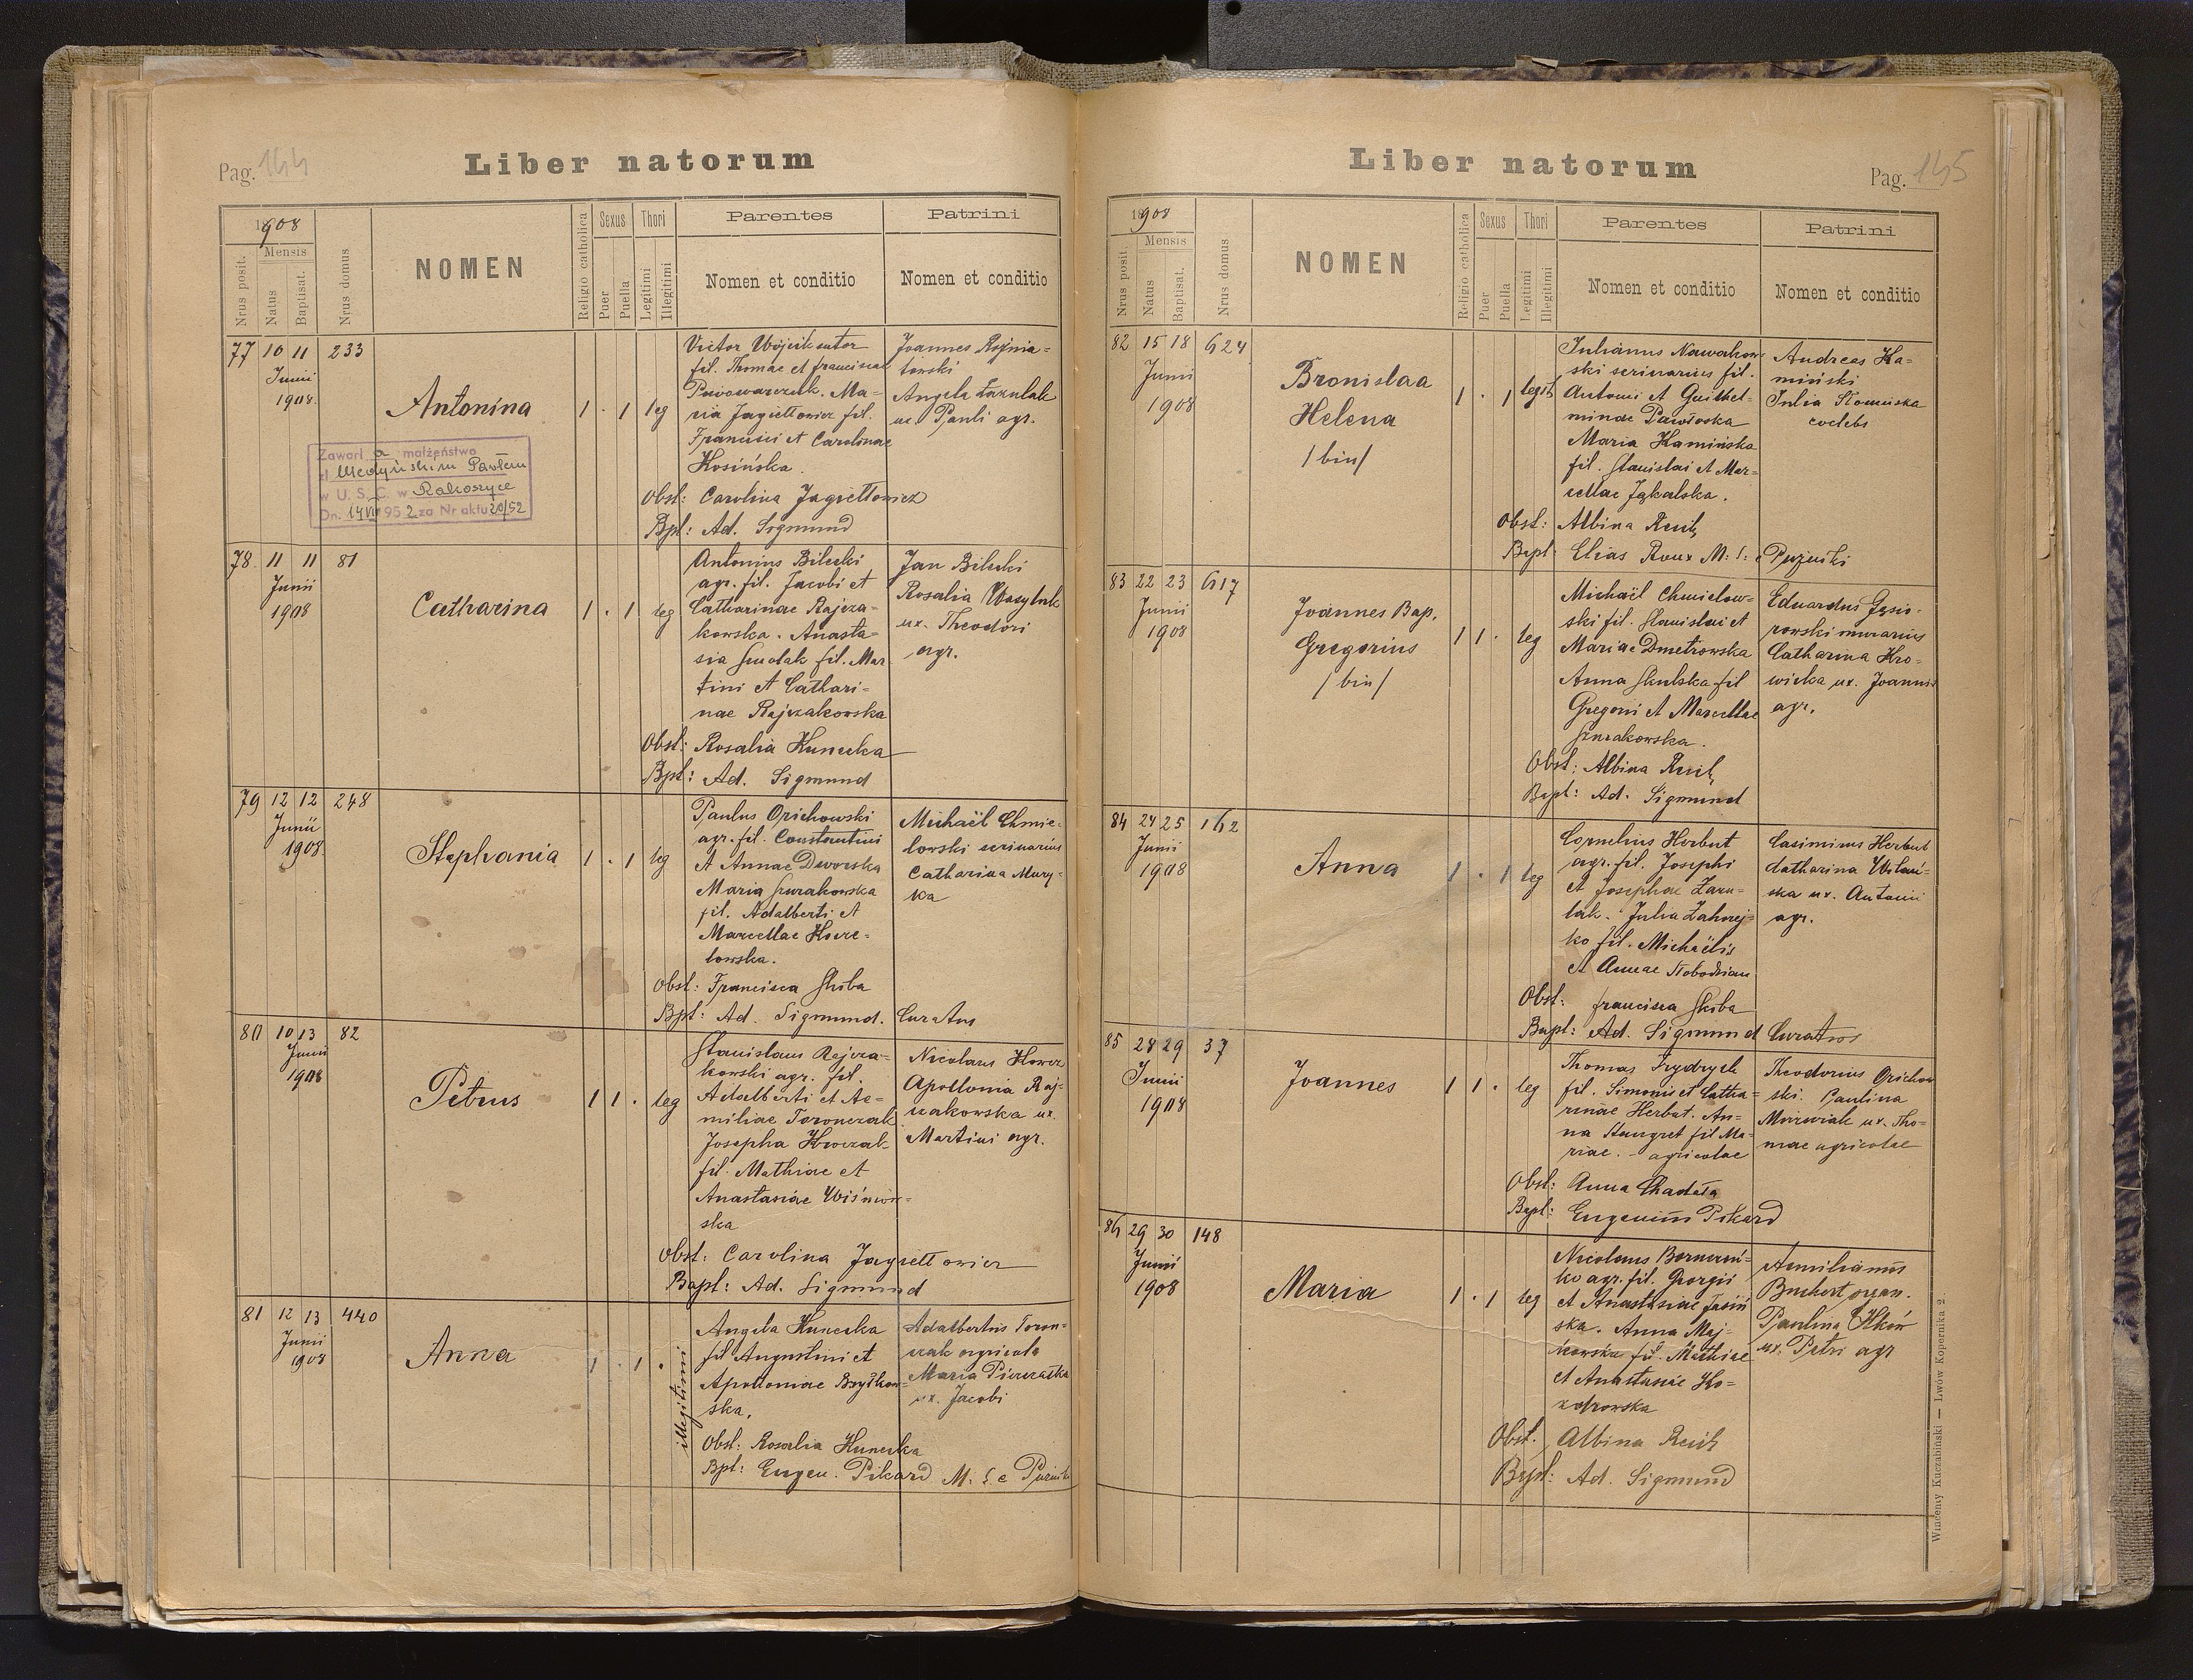 Pag. 144
Liber natorum
1908
Nrus posit.
Mensis
Natus
Baptisat.
Nrus domus
NOMEN
Religio catholica
Sexus
Puer
Puella
Thori
Legitimi
Illegitimi
Parentes
Nomen et conditio
Patrini
Nomen et conditio
77 10 11 233
Junii
1908.
Antonina
1 . 1 leg
Victor Wójcik sutor
fil. Thomae et Franciscae
Piwowarczuk. Ma-
ria Jagiełłowicz fil.
Francisci et Carolinae
Kosińska.
Obst: Carolina Jagiełłowicz
Bpt: Ad. Sigmund
Joannes Rojnia-
towski
Angela Łazulak
ux Pauli agr.
Zawarł a małżeństwo
z Medyńskim Pawłem
w U. S. C. w Rakoszyce
Dn. 14 VI 1952 za Nr aktu 20/52
78 11 11 81
Junii
1908
Catharina
1 . 1 leg
Antonius Bilecki
agr. fil. Jacobi et
Catharinae Rajcza-
kowska. Anasta-
sia Smolak fil. Mar
tini et Cathari-
nae Rajczakowska
Obst: Rosalia Kunecka
Bpt: Ad. Sigmund
Jan Bilecki
Rosalia Wasyluk
ux. Theodori
agr.
79 12 12 248
Junii
1908
Stephania
1 . 1 leg
Paulus Orichowski
agr. fil. Constantini
et Annae Dworska
Maria Szurakowska
fil. Adalberti et
Marcellae
lowska.
Obst: Francisca Skiba
Bpt: Ad. Sigmund. Curatus
Michaël Chmie-
lowski scriniarius
Catharina Mury-
ka
80 10 13 82
Junii
1908
Petrus
1 1 . leg
Stanislaus Rajcza-
kowski agr. fil.
Adalberti et Ae-
miliae Toronczak
Josepha
fil. Mathiae et
Anastasiae Wiśniow-
ska
Obst: Carolina Jagiełłowicz
Bapt: Ad. Sigmund
Nicolaus
Apollonia Raj-
czakowska ux.
Martini agr.
81 12 13 440
Junii
1908
Anna
1 . 1 .
illegitimi
Angela Kunecka
fil Augustini et
Apolloniae
ska.
Obst: Rosalia Kunecka
Bpt: Eugen. Pikard M. S. e
Adalbertus Toron-
czak agricola
Maria
ux. Jacobi
Liber natorum
Pag. 145
1908
Nrus posit.
Mensis
Natus
Baptisat.
Nrus domus
NOMEN
Religio catholica
Sexus
Puer
Puella
Thori
Legitimi
Illegitimi
Parentes
Nomen et conditio
Patrini
Nomen et conditio
82 15 18 624
Junii
1908
Bronislaa
Helena
/bin/
1 . 1
Julianus Nawakow-
ski scriniarius fil.
Antoni et Guilhel-
minae Pawłoska
Maria Kamińska
fil. Stanislai et Mar-
cellae Jąkalska.
Obst: Albina Reich
Bapt: Elias Roux M: S:
Andreas Ka-
miński
Julia Słomińska
coelebs
83 22 23 617
Junii
1908
Joannes Bap.
Gregorius
/bin/
1 1 . leg
Michaël Chmielow-
ski fil. Stanislai et
Mariae Dmetrowska
Anna Skulska fil
Gregorii et Marcellae
Szurakowska.
Obst: Albina Reich
Bapt: Ad. Sigmund
Eduardus Gąsio-
rowski murarius
Catharina Kro-
wicka ux. Joannis
agr.
84 24 25 162
Junii
1908
Anna
1 . 1 leg
Cornelius Herbut
agr. fil. Josephi
et Josephae Łazu-
lak. Julia Zahrej-
ko fil. Michaëlis
et Annae Słobodzian
Obst: Francisca Skiba
Bapt: Ad. Sigmund Curatus
Casimirus Herbut
Catharina
ska ux. Antonii
agr.
85 28 29 37
Junii
1908
Joannes
1 1 . leg
Thomas Frydrych
fil. Simonis et Catha-
rinae Herbut. An-
na Stangret fil Ma-
riae. - agricolae
Obst: Anna Chadała
Bapt: Eugenius Pikard
Theodorus Orichow
ski. Paulina
ux. Tho-
mae agricolae
86 29 30 148
Junii
1908
Maria
1 . 1 leg
Nicolaus
ko agr. fil. Georgii
et Anastasiae Jasiń
ska. Anna Maj-
kowska fil. Mathiae
et Anastasiae Ko-
zdrowska
Obst. Albina Reich
Bapt: Ad. Sigmund
Aemilianus
Buchert organ.
Paulina
ux. Petri agr
Wincenty Kuczabiński — Lwów Kopernika 2.